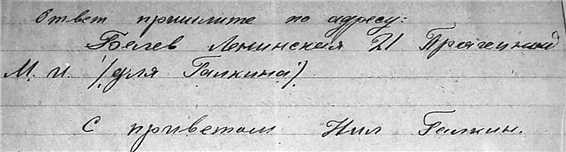 Ответ пришлите по адресу:
Белев Ленинская 21
М. И. (для Галкина)
С приветом Нил Галкин.